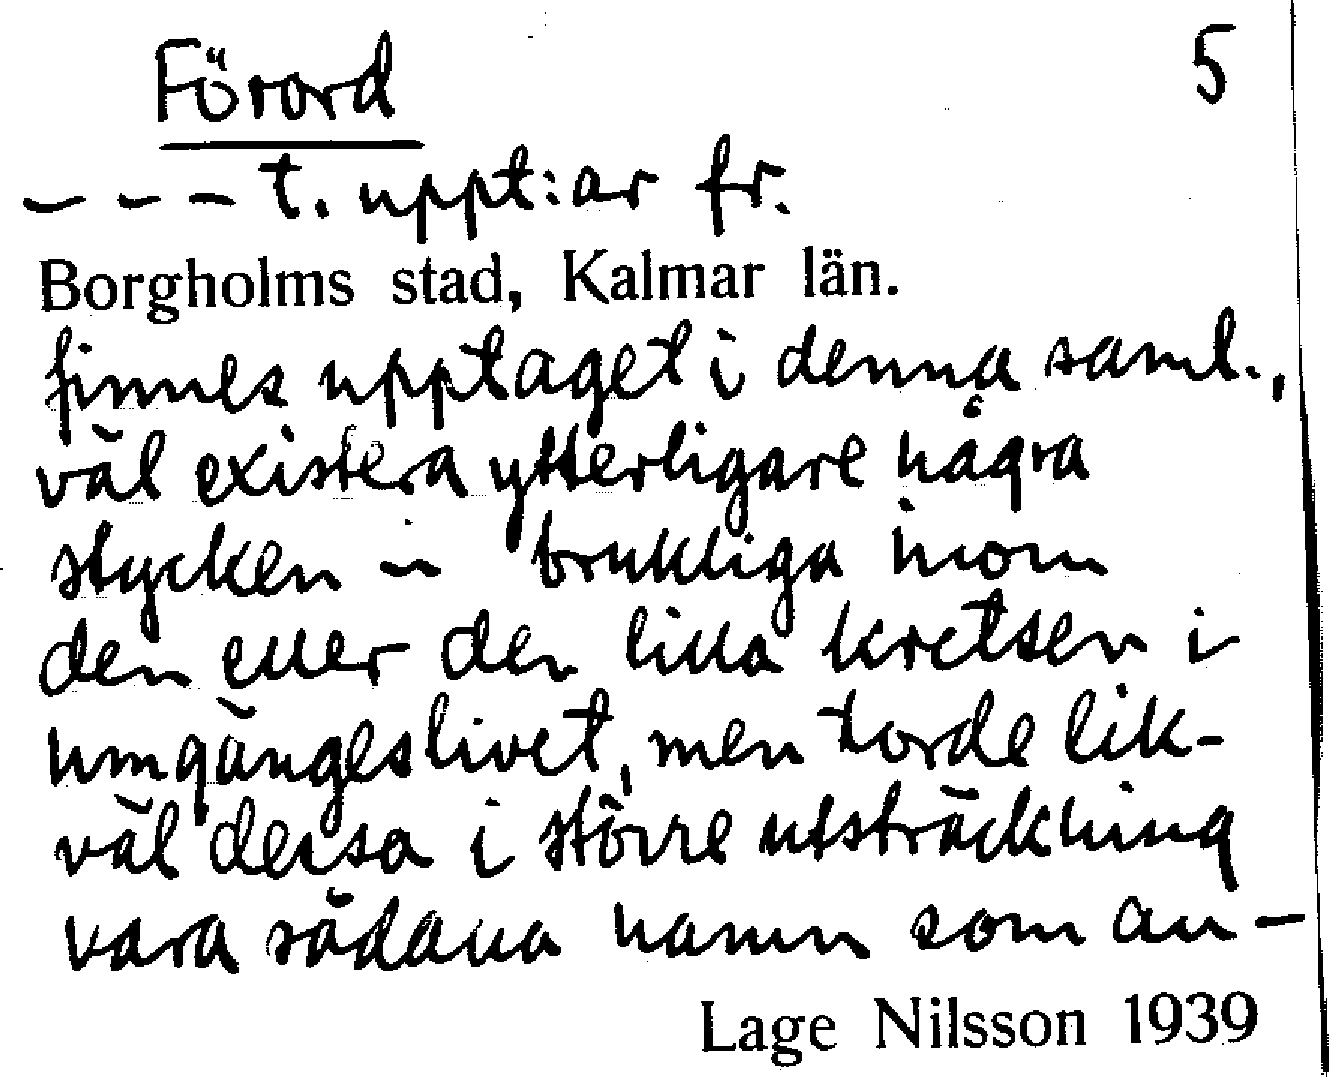 Förord 5
– – – t. uppt:ar fr.
Borgholms stad, Kalmar län.
finnes upptaget i denna saml.,
väl existera ytterligare några
stycken – brukliga inom
den eller den lilla kretsen i
umgängeslivet, men torde lik-
väl dessa i större utsträckning
vara sådana namn som an-
Lage Nilsson 1939